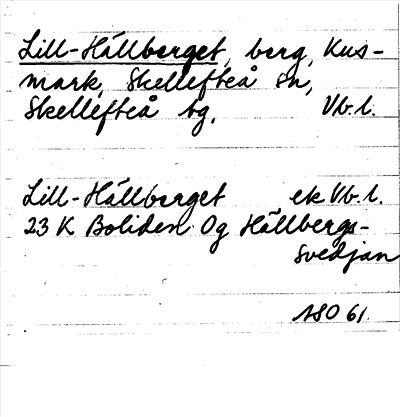 Lill-Hällberget, berg, Kus-
mark, Skellefteå sn,
Skellefteå tg. Vb. l.
Lill-Hällberget ek Vb. l.
23 K Boliden Og Hällbergs-
svedjan
ASO 61.